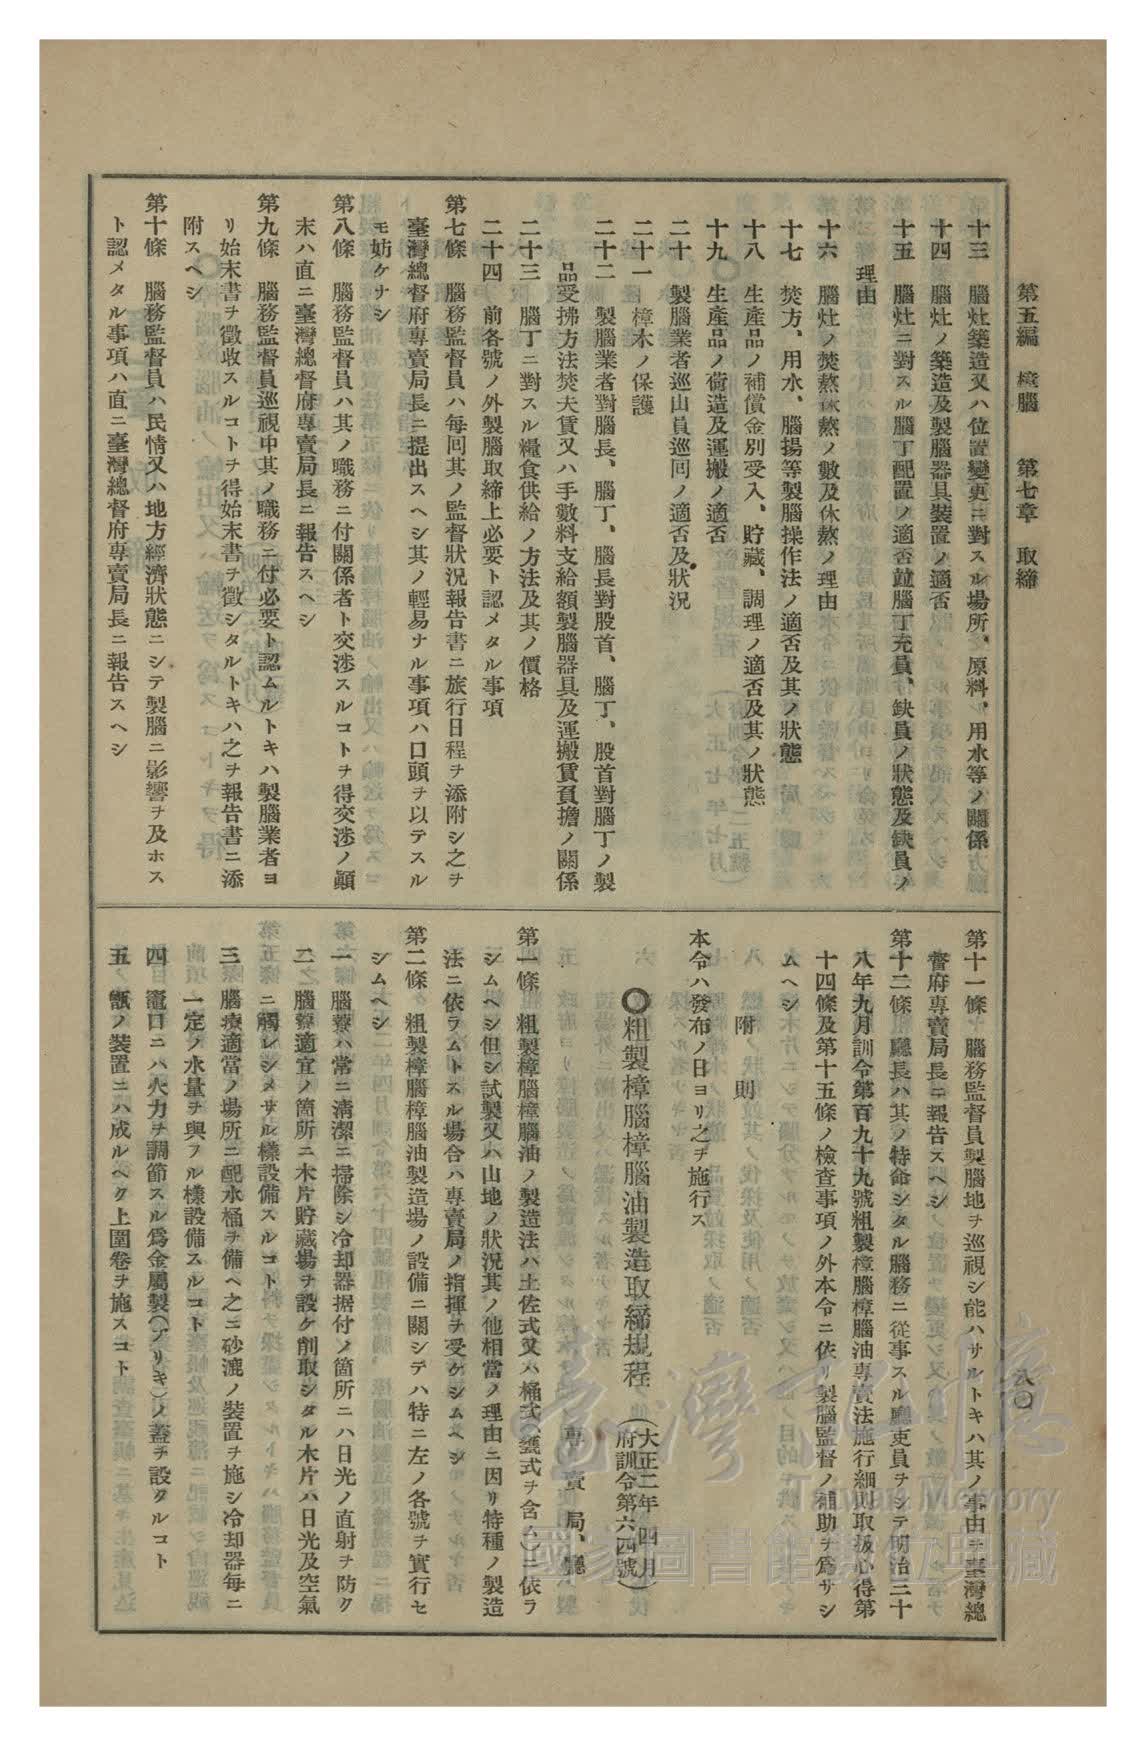 第五編　樟腦　第七章　取締
八〇
十三　腦灶築造又ハ位置變更ニ對スル場所、原料、用水等ノ關係
十四　腦灶ノ築造及製腦器具裝置ノ適否
十五　腦灶ニ對スル腦丁配置ノ適否竝腦丁充員、缺員ノ狀態及缺員ノ
理由
十六　腦灶ノ焚熬休熬ノ數及休熬ノ理由
十七　焚方、用水、腦揚等製腦操作法ノ適否及其ノ狀態
十八　生產品ノ補償金別受入、貯藏、調理ノ適否及其ノ狀態
十九　生產品ノ荷造及運搬ノ適否
二十　製腦業者巡山員巡回ノ適否及狀況
二十一　樟木ノ保護
二十二　製腦業者對腦長、腦丁、腦長對股首、腦丁、股首對腦丁ノ製
品受拂方法焚夫賃又ハ手數料支給額製腦器具及運搬賃負擔ノ關係
二十三　腦丁ニ對スル糧食供給ノ方法及其ノ價格
二十四　前各號ノ外製腦取締上必要ト認メタル事項
第七條　腦務監督員ハ每回其ノ監督狀況報告書ニ旅行日程ヲ添附シ之ヲ
臺灣總督府專賣局長ニ提出スヘシ其ノ輕易ナル事項ハ口頭ヲ以テスル
モ妨ケナシ
第八條　腦務監督員ハ其ノ職務ニ付關係者ト交涉スルコトヲ得交涉ノ顚
末ハ直ニ臺灣總督府專賣局長ニ報告スヘシ
第九條　腦務監督員巡視中其ノ職務ニ付必要ト認ムルトキハ製腦業者ヨ
リ始末書ヲ徵收スルコトヲ得始末書ヲ徵シタルトキハ之ヲ報告書ニ添
附スヘシ
第十條　腦務監督員ハ民情又ハ地方經濟狀態ニシテ製腦ニ影響ヲ及ホス
ト認メタル事項ハ直ニ臺灣總督府專賣局長ニ報告スヘシ
第十一條　腦務監督員製腦地ヲ巡視シ能ハサルトキハ其ノ事由ヲ臺灣總
督府專賣局長ニ報告スヘシ
第十二條　廳長ハ其ノ特命シタル腦務ニ從事スル廳吏員ヲシテ明治三十
八年九月訓令第百九十九號粗製樟腦樟腦油專賣法施行細則取扱心得第
十四條及第十五條ノ檢查事項ノ外本令ニ依リ製腦監督ノ補助ヲ爲サシ
ムヘシ
附　則
本令ハ發布ノ日ヨリ之ヲ施行ス
〇粗製樟腦樟腦油製造取締規程（大正二年四月
府訓令第六四號）
專賣局、廳
第一條　粗製樟腦樟腦油ノ製造法ハ土佐式又ハ桶式（甑式ヲ含ム）ニ依ラ
シムヘシ但シ試製又ハ山地ノ狀況其ノ他相當ノ理由ニ因リ特種ノ製造
法ニ依ラムトスル場合ハ專賣局ノ指揮ヲ受ケシムヘシ
第二條　粗製樟腦樟腦油製造場ノ設備ニ關シテハ特ニ左ノ各號ヲ實行セ
シムヘシ
一　腦藔ハ常ニ淸潔ニ掃除シ冷却器据付ノ箇所ニハ日光ノ直射ヲ防ク
二　腦藔適宜ノ箇所ニ木片貯藏場ヲ設ケ削取シタル木片ハ日光及空氣
ニ觸レシメサル樣設備スルコト
三　腦藔適當ノ場所ニ配水桶ヲ備ヘ之ニ砂漉ノ裝置ヲ施シ冷却器每ニ
一定ノ水量ヲ與フル樣設備スルコト
四　竈口ニハ火力ヲ調節スル爲金屬製（ブリキ）ノ蓋ヲ設クルコト
五　甑ノ裝置ニハ成ルヘク上圍卷ヲ施スコト
臺灣記憶
Taiwan Memory
國家圖書館數位典藏